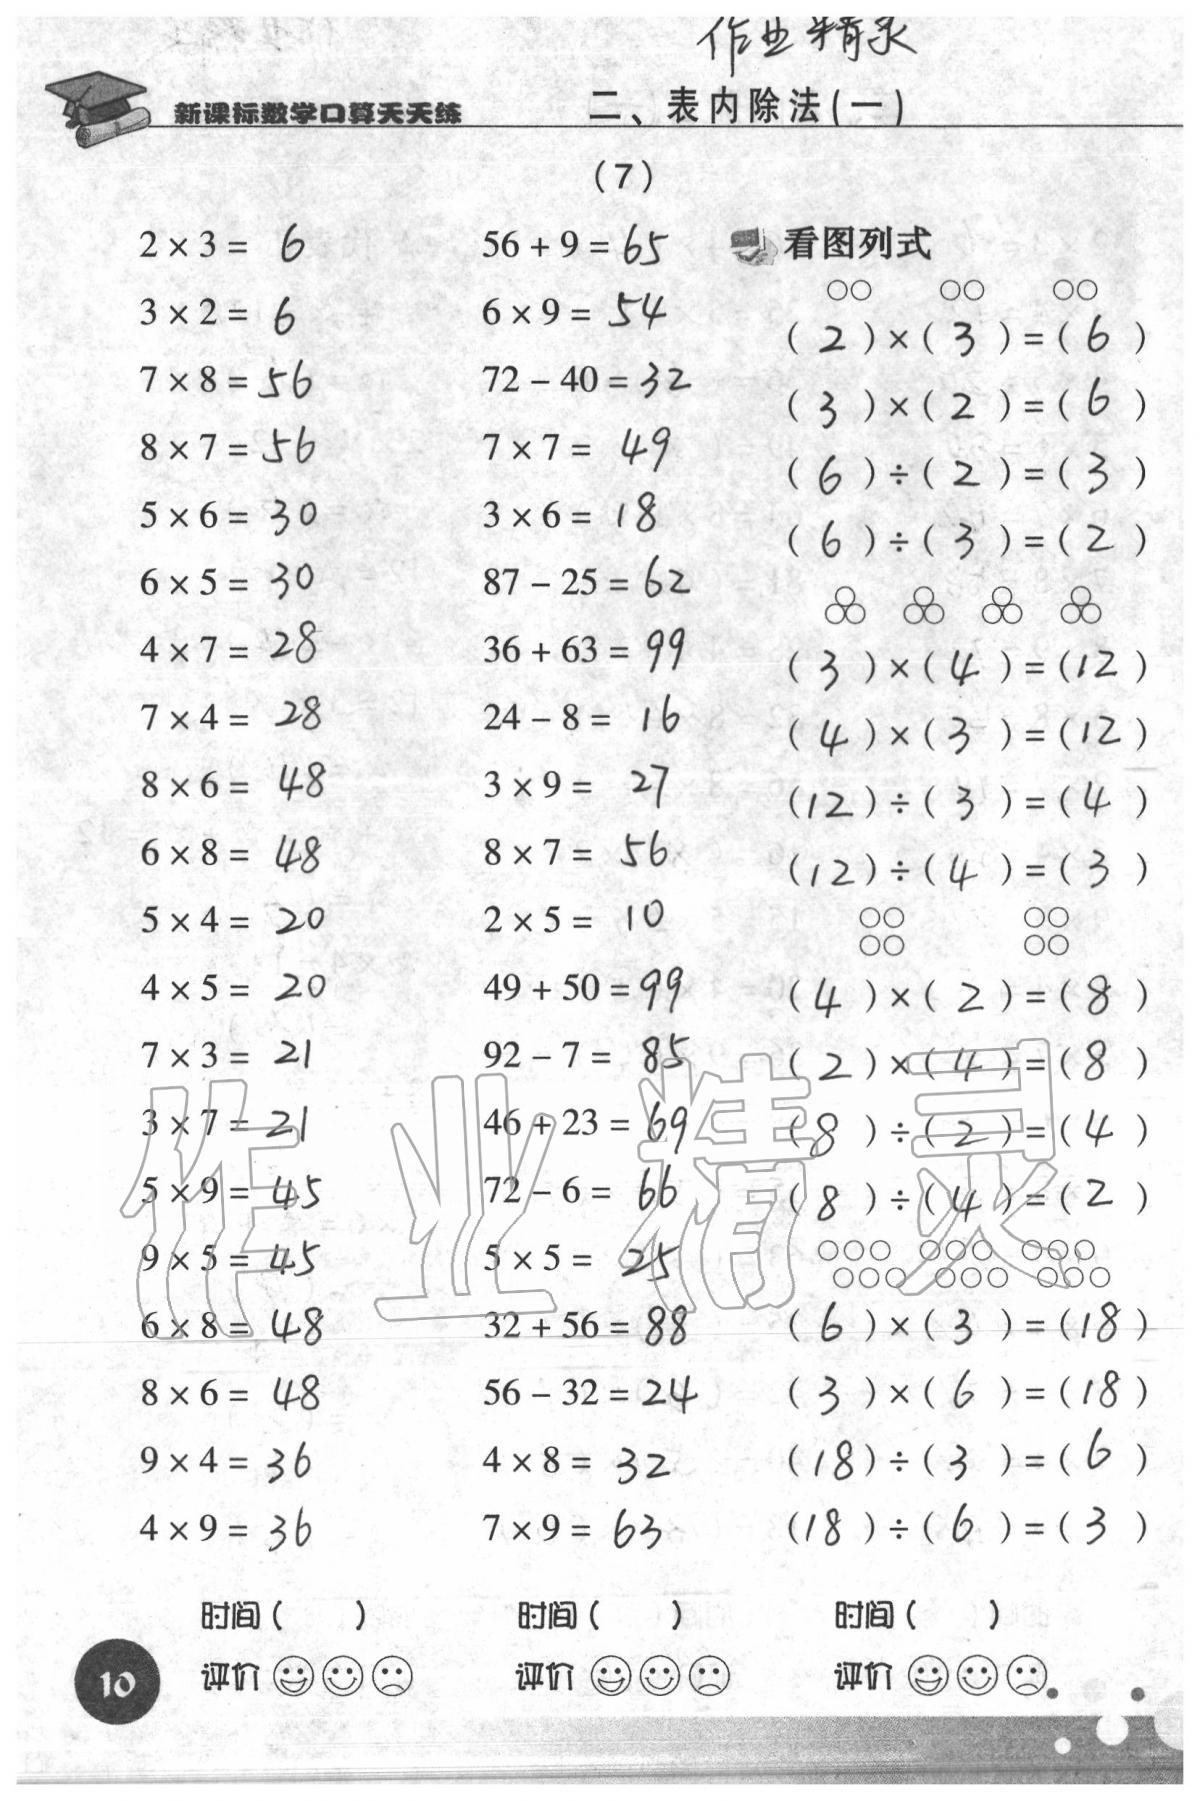 作业精灵
新课标数学口算天天练
二、表内除法(一)
(7)
2 × 3 = 6
3 × 2 = 6
7 × 8 = 56
8 × 7 = 56
5 × 6 = 30
6 × 5 = 30
4 × 7 = 28
7 × 4 = 28
8 × 6 = 48
6 × 8 = 48
5 × 4 = 20
4 × 5 = 20
7 × 3 = 21
3 × 7 = 21
5 × 9 = 45
9 × 5 = 45
6 × 8 = 48
8 × 6 = 48
9 × 4 = 36
4 × 9 = 36
时间( )
评价
56 + 9 = 65
6 × 9 = 54
72 − 40 = 32
7 × 7 = 49
3 × 6 = 18
87 − 25 = 62
36 + 63 = 99
24 − 8 = 16
3 × 9 = 27
8 × 7 = 56
2 × 5 = 10
49 + 50 = 99
92 − 7 = 85
46 + 23 = 69
72 − 6 = 66
5 × 5 = 25
32 + 56 = 88
56 − 32 = 24
4 × 8 = 32
7 × 9 = 63
时间( )
评价
看图列式
(2)×(3)=(6)
(3)×(2)=(6)
(6)÷(2)=(3)
(6)÷(3)=(2)
(3)×(4)=(12)
(4)×(3)=(12)
(12)÷(3)=(4)
(12)÷(4)=(3)
(4)×(2)=(8)
(2)×(4)=(8)
(8)÷(2)=(4)
(8)÷(4)=(2)
(6)×(3)=(18)
(3)×(6)=(18)
(18)÷(3)=(6)
(18)÷(6)=(3)
时间( )
评价
10
作业精灵